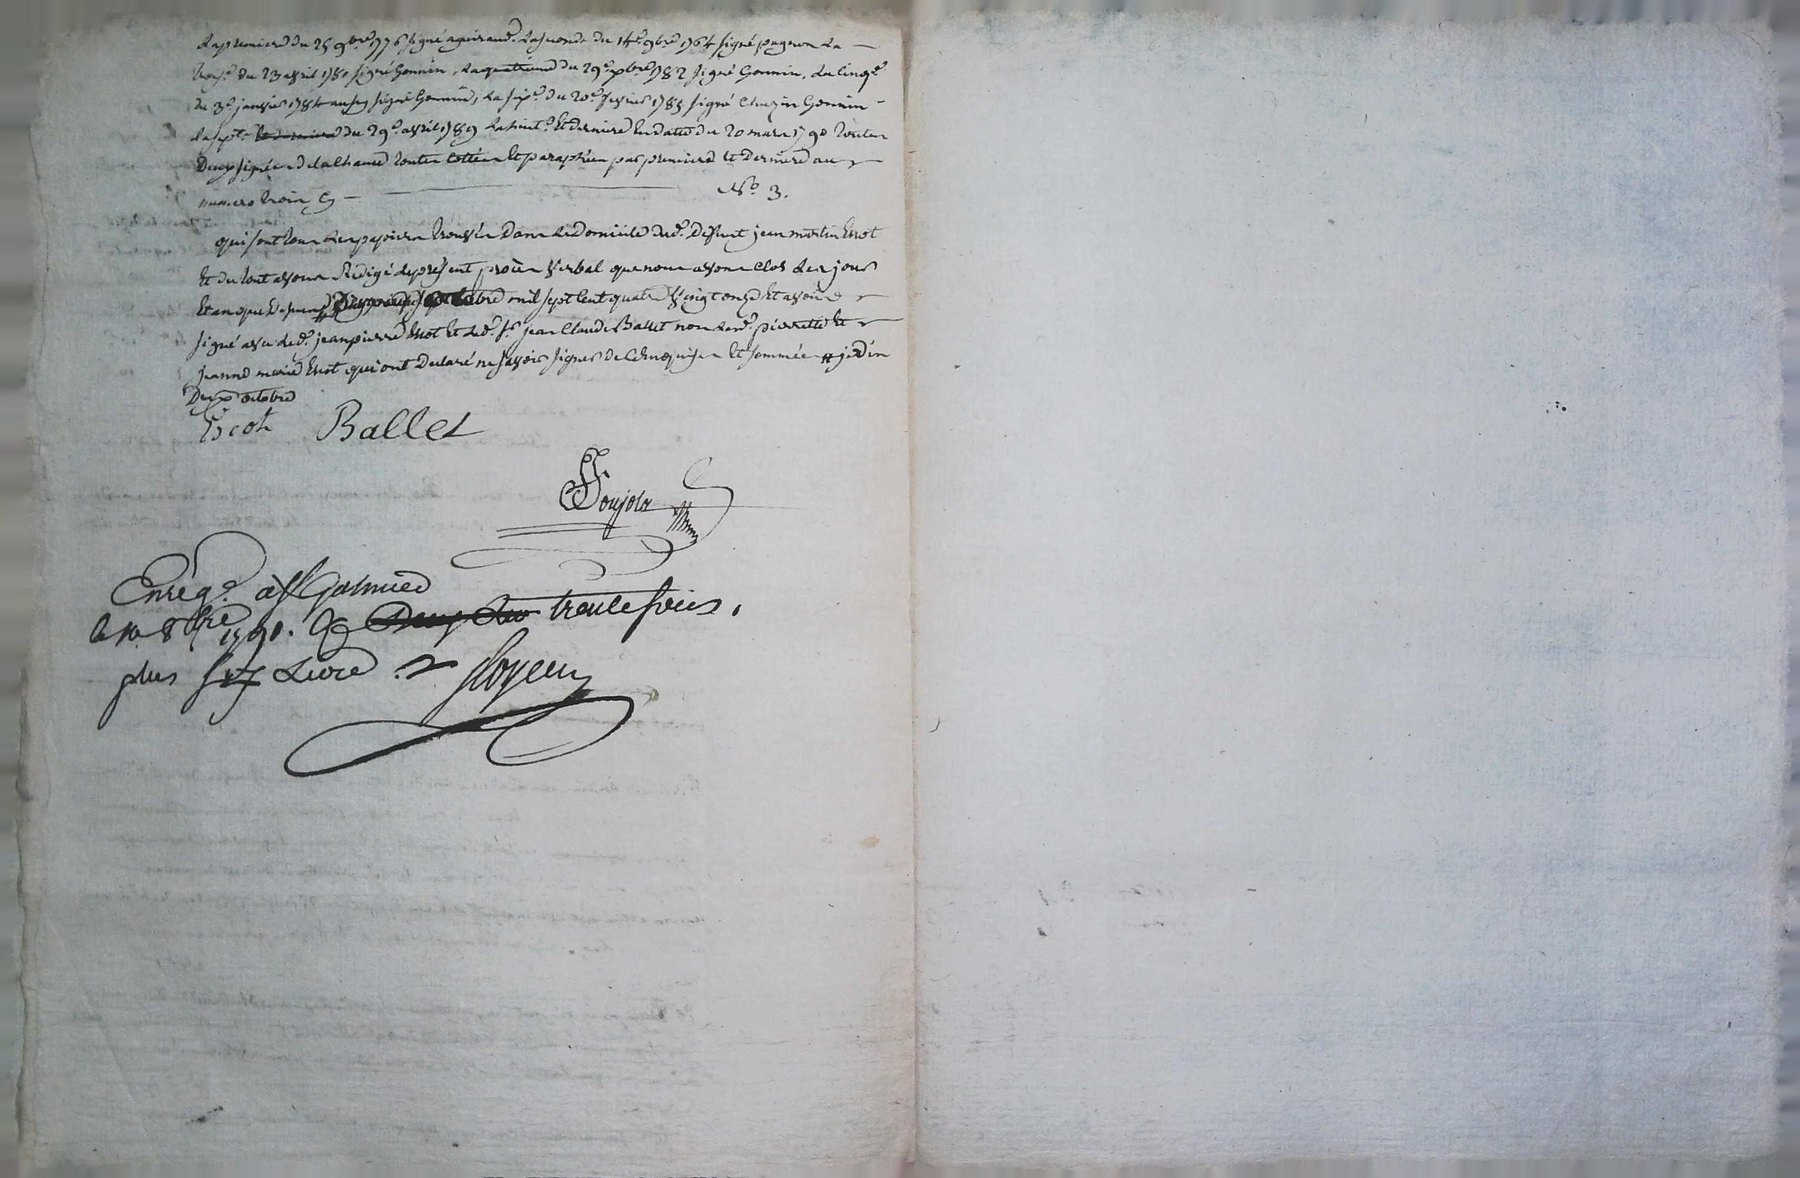 La premiere du 25 9bre 1776 signé aguiraud. La seconde du 14e 9bre 1764 signé pugnon La
trois.e du 23 avril 1780 signé Gonnin, La quatrieme du 29e xbre 1782 signé Gonnin, La cinq.e
du 3e janvier 1784 aussy signé Gonnin, La six.e du 20e fevrier 1785 signé Chazin Gonnin
La sept.e du 29e avril 1789 La huit.e Et derniere En datte du 20 mars 1790 toutes
Deux signées delalhaud toutes Cottées Et paraphées par premiere Et Derniere au
numero trois Cy No 3.
qui sont tous Les papiers trouvés Dans Le domicile dud. Defunt jean martin Escot
Et du tout avons Redigé Le present procès Verbal que nous avons Clos Les jour
Et an que Dessus mil sept Cent quatre Vingt onze Et avons
signé avec Led. jean pierre Escot Et Led. sr jean Claude Ballet non Lesd. pierrette Et
jeanne marie Escot qui ont Declaré ne savoir signer de Ce Enquises Et sommées # jedin
Deux octobre
Escot Ballet
Soujola
Enregé. à St Galmier
le 10 8bre 1791. trente sous.
plus six Livre